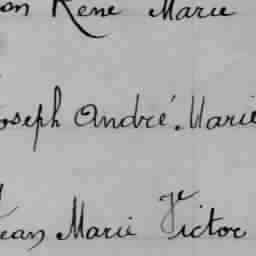 on René Marie
oseph André. Marie
ean Marie Victor